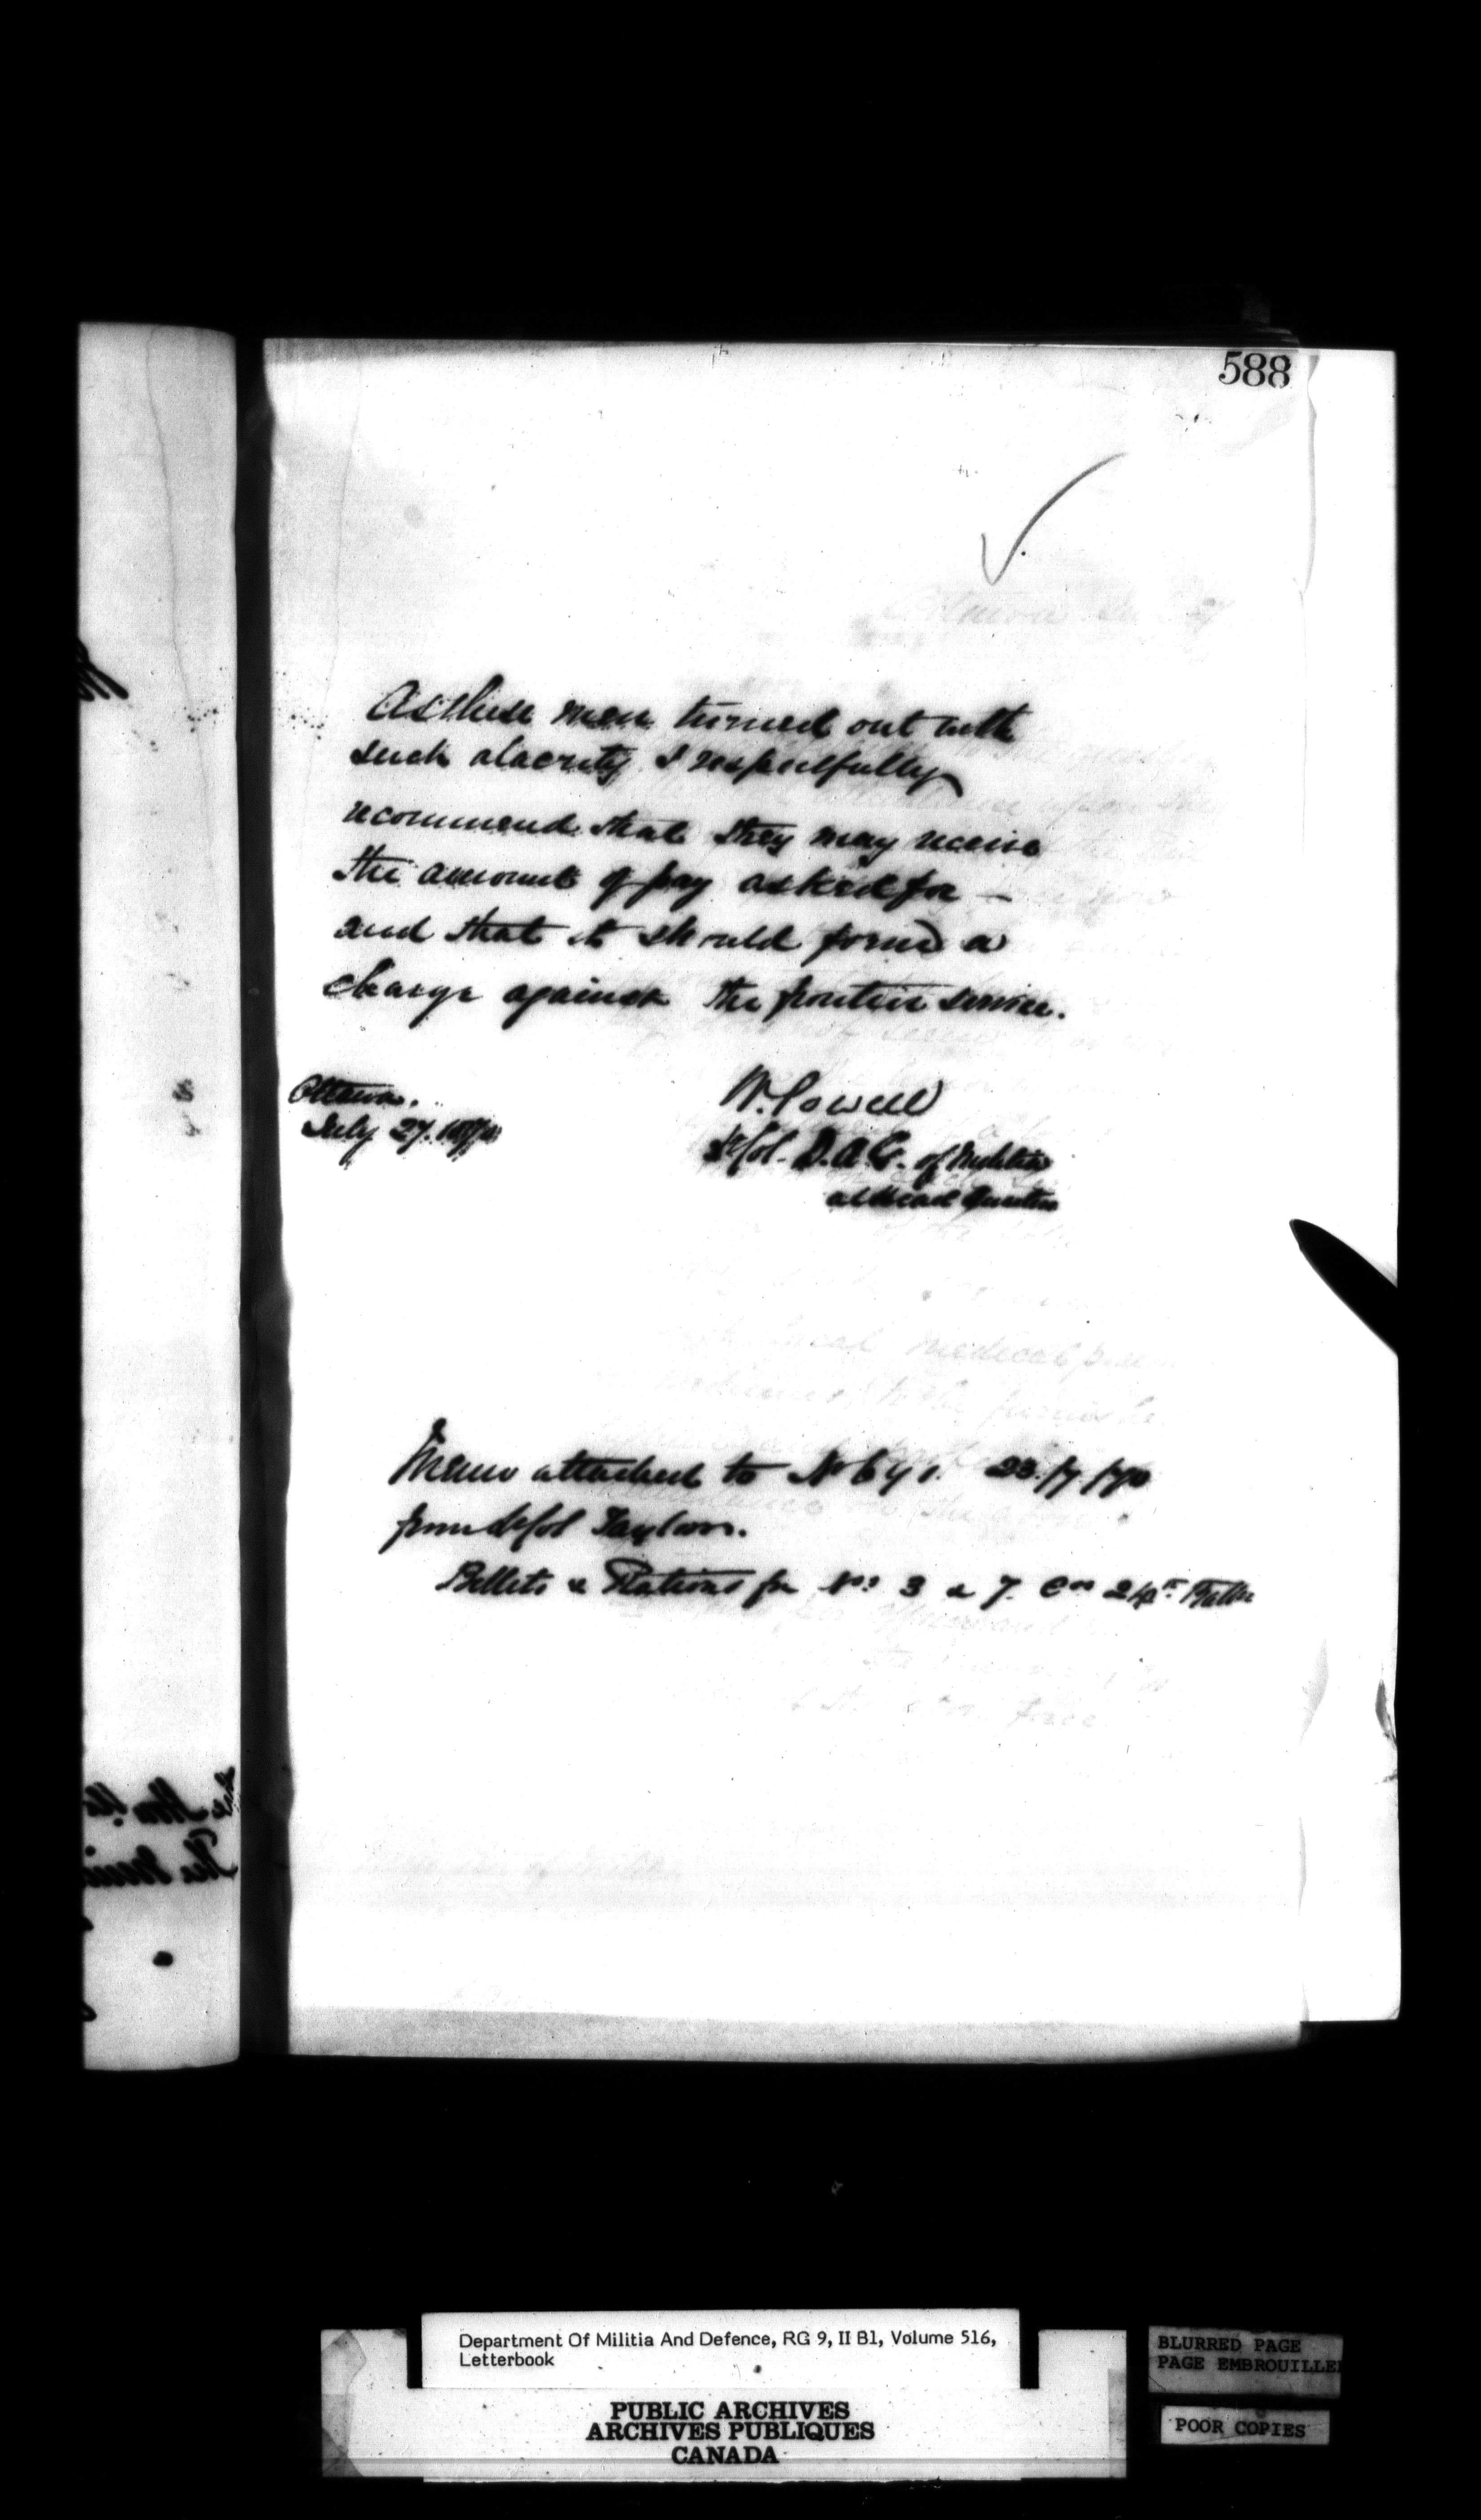 588
As these men turned out with
such alacrity I respectfully
recommend that they may receive
the amount of pay asked for —
and that it should form a
charge against the frontier service.
Ottawa.
July 27. 1870
W. Powell
Lt Col. D.A.G. of Militia
at Head Quarters
Memo attached to No 23/7/70
from Lt Col Taylor.
Billets & Rations for Nos 3 & 7. Cos 24th Battn
Department Of Militia And Defence, RG 9, II B1, Volume 516,
Letterbook
PUBLIC ARCHIVES
ARCHIVES PUBLIQUES
CANADA
BLURRED PAGE
PAGE EMBROUILLEE
POOR COPIES